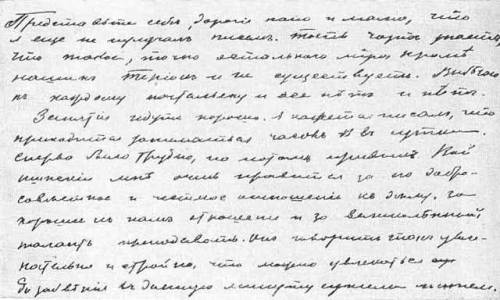 Представьте себе, дорогие папа и мама, что
я еще не получалъ писемъ. Тоесть чортъ знаетъ
что такое, точно остального мiра, кромѣ
нашихъ и не существуетъ. Выбѣгаю
къ каждому почтальону и все нѣтъ и нѣтъ.
Занятiя идутъ хорошо. Я кажется писалъ, что
приходится заниматься часовъ въ сутки.
Сперва было трудно, но потомъ привыкъ.
мнѣ очень нравится за его добро-
совѣстное и честное отношенiе къ дѣлу, за
хорошее къ намъ отношенiе и за великолѣпный
талантъ преподавать. Онъ говоритъ такъ увле-
кательно и стройно, что можно увлечься
до забвенiя въ данную минуту